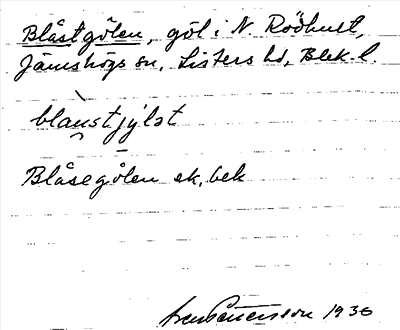 Blåstgölen, göl i N. Rödhult,
Jämshögs sn, Listers hd, Blek. l.
blanstjylst
Blåsegölen ek. bek
1936